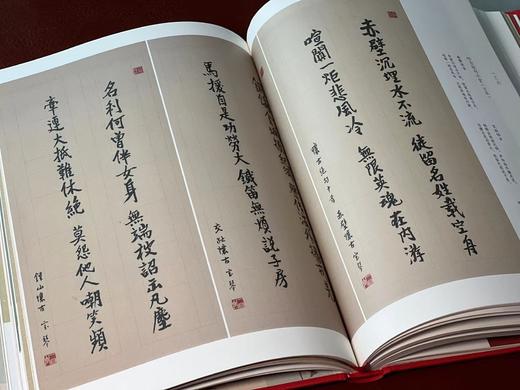 赤壁沉埋水不流 徒留名姓載空舟
喧闐一炬悲風冷 無限英魂在内游
懷古絕句十首 赤壁懷古 宝琴
馬援自是功勞大 鐵笛無煩說子房
交趾懷古 宝琴
名利何曾伴女身 無端被詔出凡塵
牽連大抵難休絕 莫怨他人嘲笑頻
鍾山懷古 宝琴